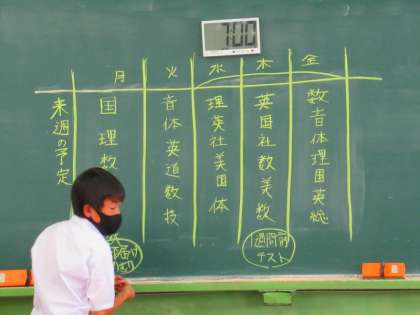 7:00
月 火 水 木 金
来週の予定
国理数
音体英道数技
理英社美国体
英国社数美数
数音体理国英総
1週間前
テスト